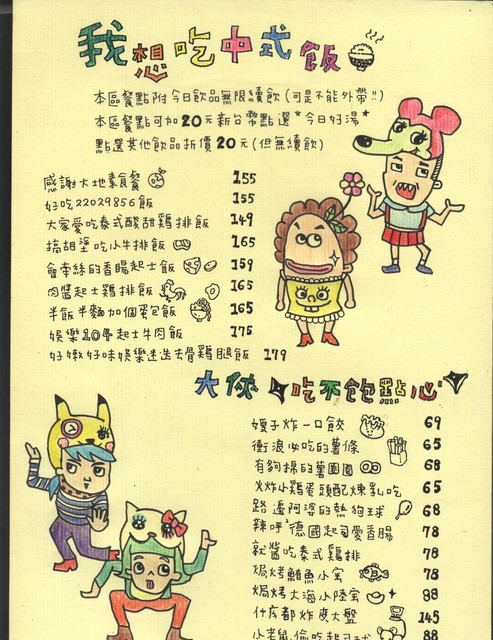 我想吃中式飯
本區餐點附今日飲品無限續飲(可是不能外帶!!)
本區餐點可加20元新台幣點選*今日好湯*
點選其他飲品折價20元(但無續飲)
感謝大地素食餐 155
好吃22029856飯 155
大家愛吃泰式酸甜雞排飯 149
搞胡塗吃小牛排飯 165
會牽絲的香腸起士飯 159
肉醬起士雞排飯 165
半飯半麵加個蛋包飯 165
娛樂起士牛肉飯 175
好嫩好味娛樂迷迭去骨雞腿飯 179
大俠吃不飽點心
嫂子炸一口餃 69
衝浪必吃的薯條 65
有夠棉的薯圈圈 68
火炸小雞蛋頭配煉乳吃 65
路邊阿婆的熱狗球 68
辣呼呼德國起司愛香腸 78
就醬吃泰式雞排 78
焗烤鮪魚小宝 78
焗烤大海小陸宝 88
什麼都炸皮大盤 145
小老鼠偷吃起司球